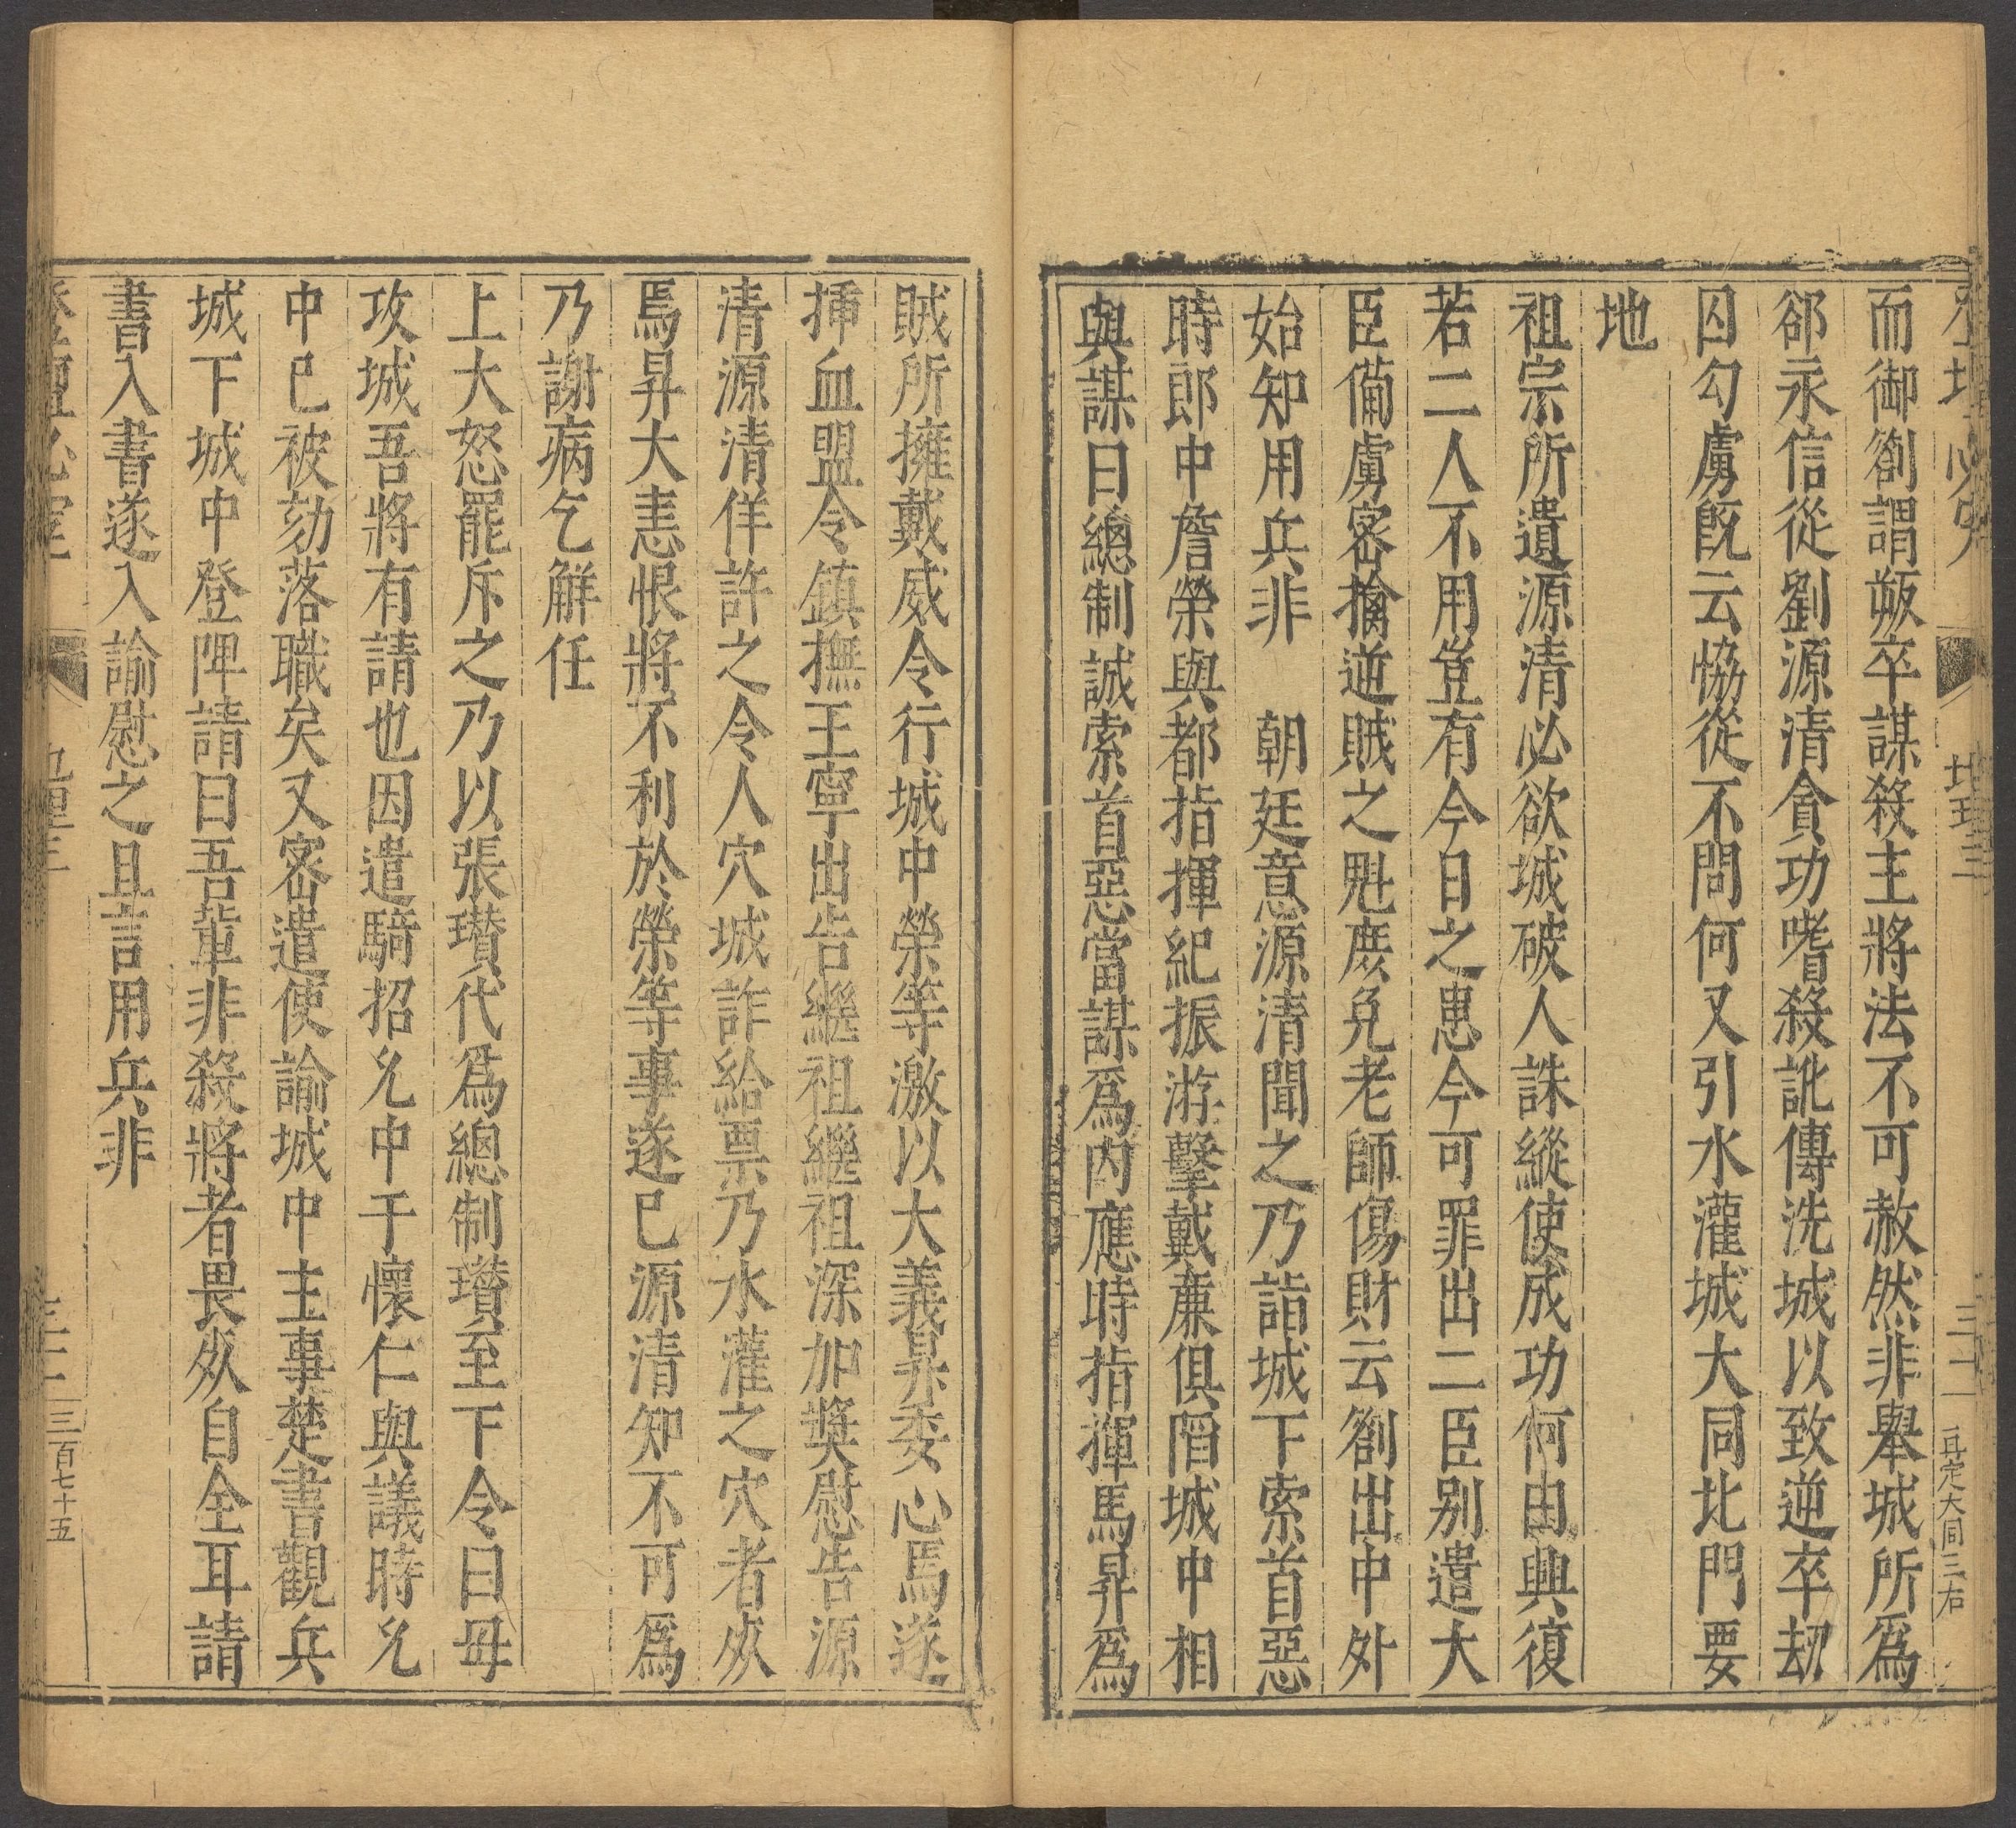 而御劄謂叛卒謀殺主將法不可赦然非舉城所爲
郤永信從劉源清貪功嗜殺訛傳洗城以致逆卒刼
囚勾虜旣云恊從不問何又引水灌城大同北門要
地
祖宗所遺源清必欲城破人誅縱使成功何由興復
若二人不用豈有今日之患今可罪出二臣别遣大
臣備虜宻擒逆賊之魁庶免老師傷財云劄出中外
始知用兵非　朝廷意源清聞之乃詣城下索首惡
時郎中詹榮與都指揮紀振游擊戴㢘俱䧟城中相
與謀曰總制誠索首惡當謀爲内應時指揮馬昇爲
賊所擁戴威令行城中榮等激以大義昇委心焉遂
揷血盟令鎮撫王寧出告繼祖繼祖深加奬慰告源
清源清佯許之令人穴城詐給票乃水灌之穴者死
焉昇大恚恨將不利於榮等事遂已源清知不可爲
乃謝病乞觧任
上大怒罷斥之乃以張瓉代爲總制瓉至下令曰毋
攻城吾將有請也因遣騎招允中于懷仁與議時允
中已被劾落職矣又宻遣使諭城中主事楚書觀兵
城下城中登陴請曰吾輩非殺將者畏死自全耳請
書入書遂入諭慰之且言用兵非
三百七十五